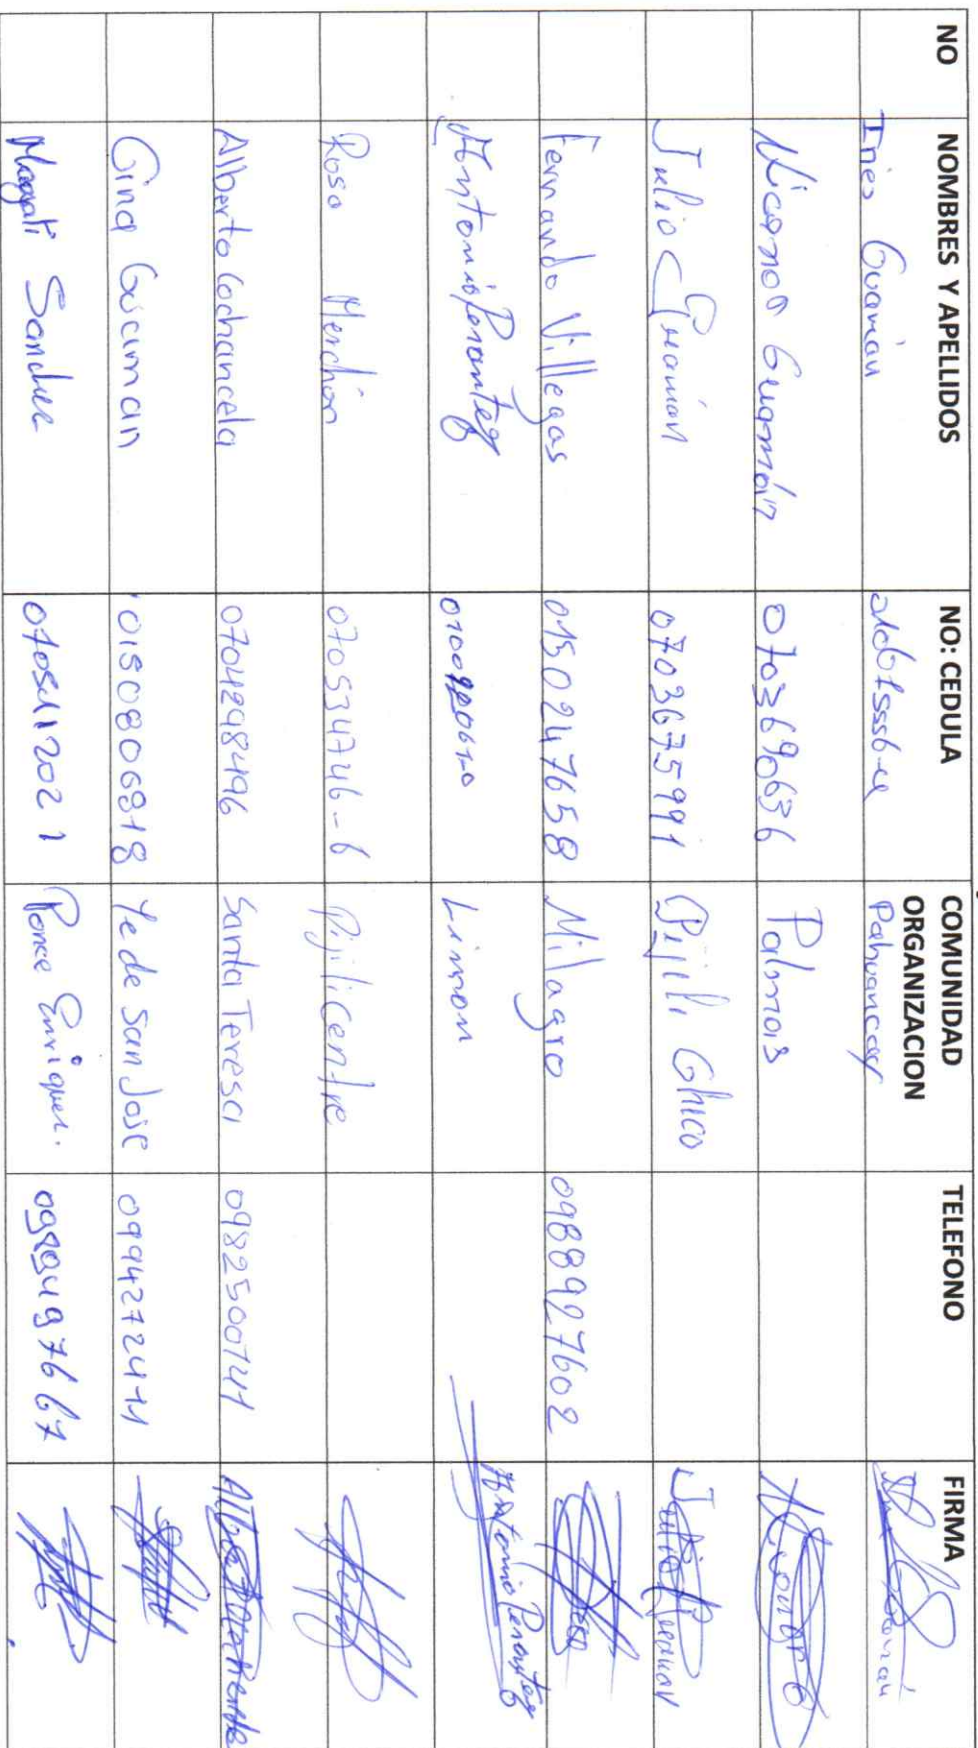 NO NOMBRES Y APELLIDOS NO: CEDULA COMUNIDAD ORGANIZACION TELEFONO FIRMA
Inés Guamán Pahuancay
Nicanor Guamán 0703690636 Palmas
Julio Guamán 0703675991 Pijili Chico Julio Guaman
Fernando Villegas 0150247658 Milagro 0988927602
Antonio Perantez Limon Antonio Perantez
Rosa Merchán 070534746-6 Pijili Centre
Alberto Cochancela 0704298496 Santa Teresa 0982500741
Gina Gucuman 0150806818 Ye de San Jose 0994272411
Magali Sanchez 0705411202 1 Ponce Enriquez. 0989497667